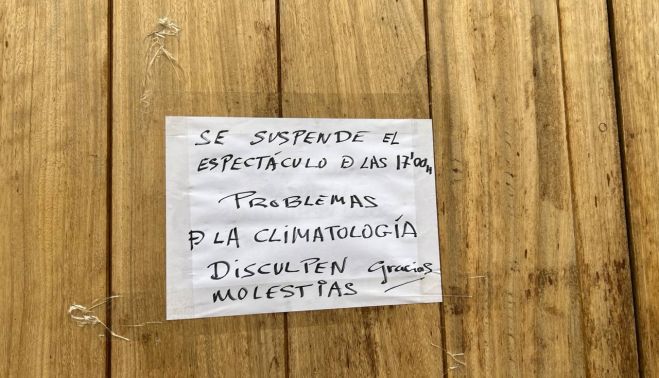 SE SUSPENDE EL
ESPECTÁCULO Đ LAS 17'00H
PROBLEMAS
Đ LA CLIMATOLOGÍA
DISCULPEN Gracias
MOLESTIAS